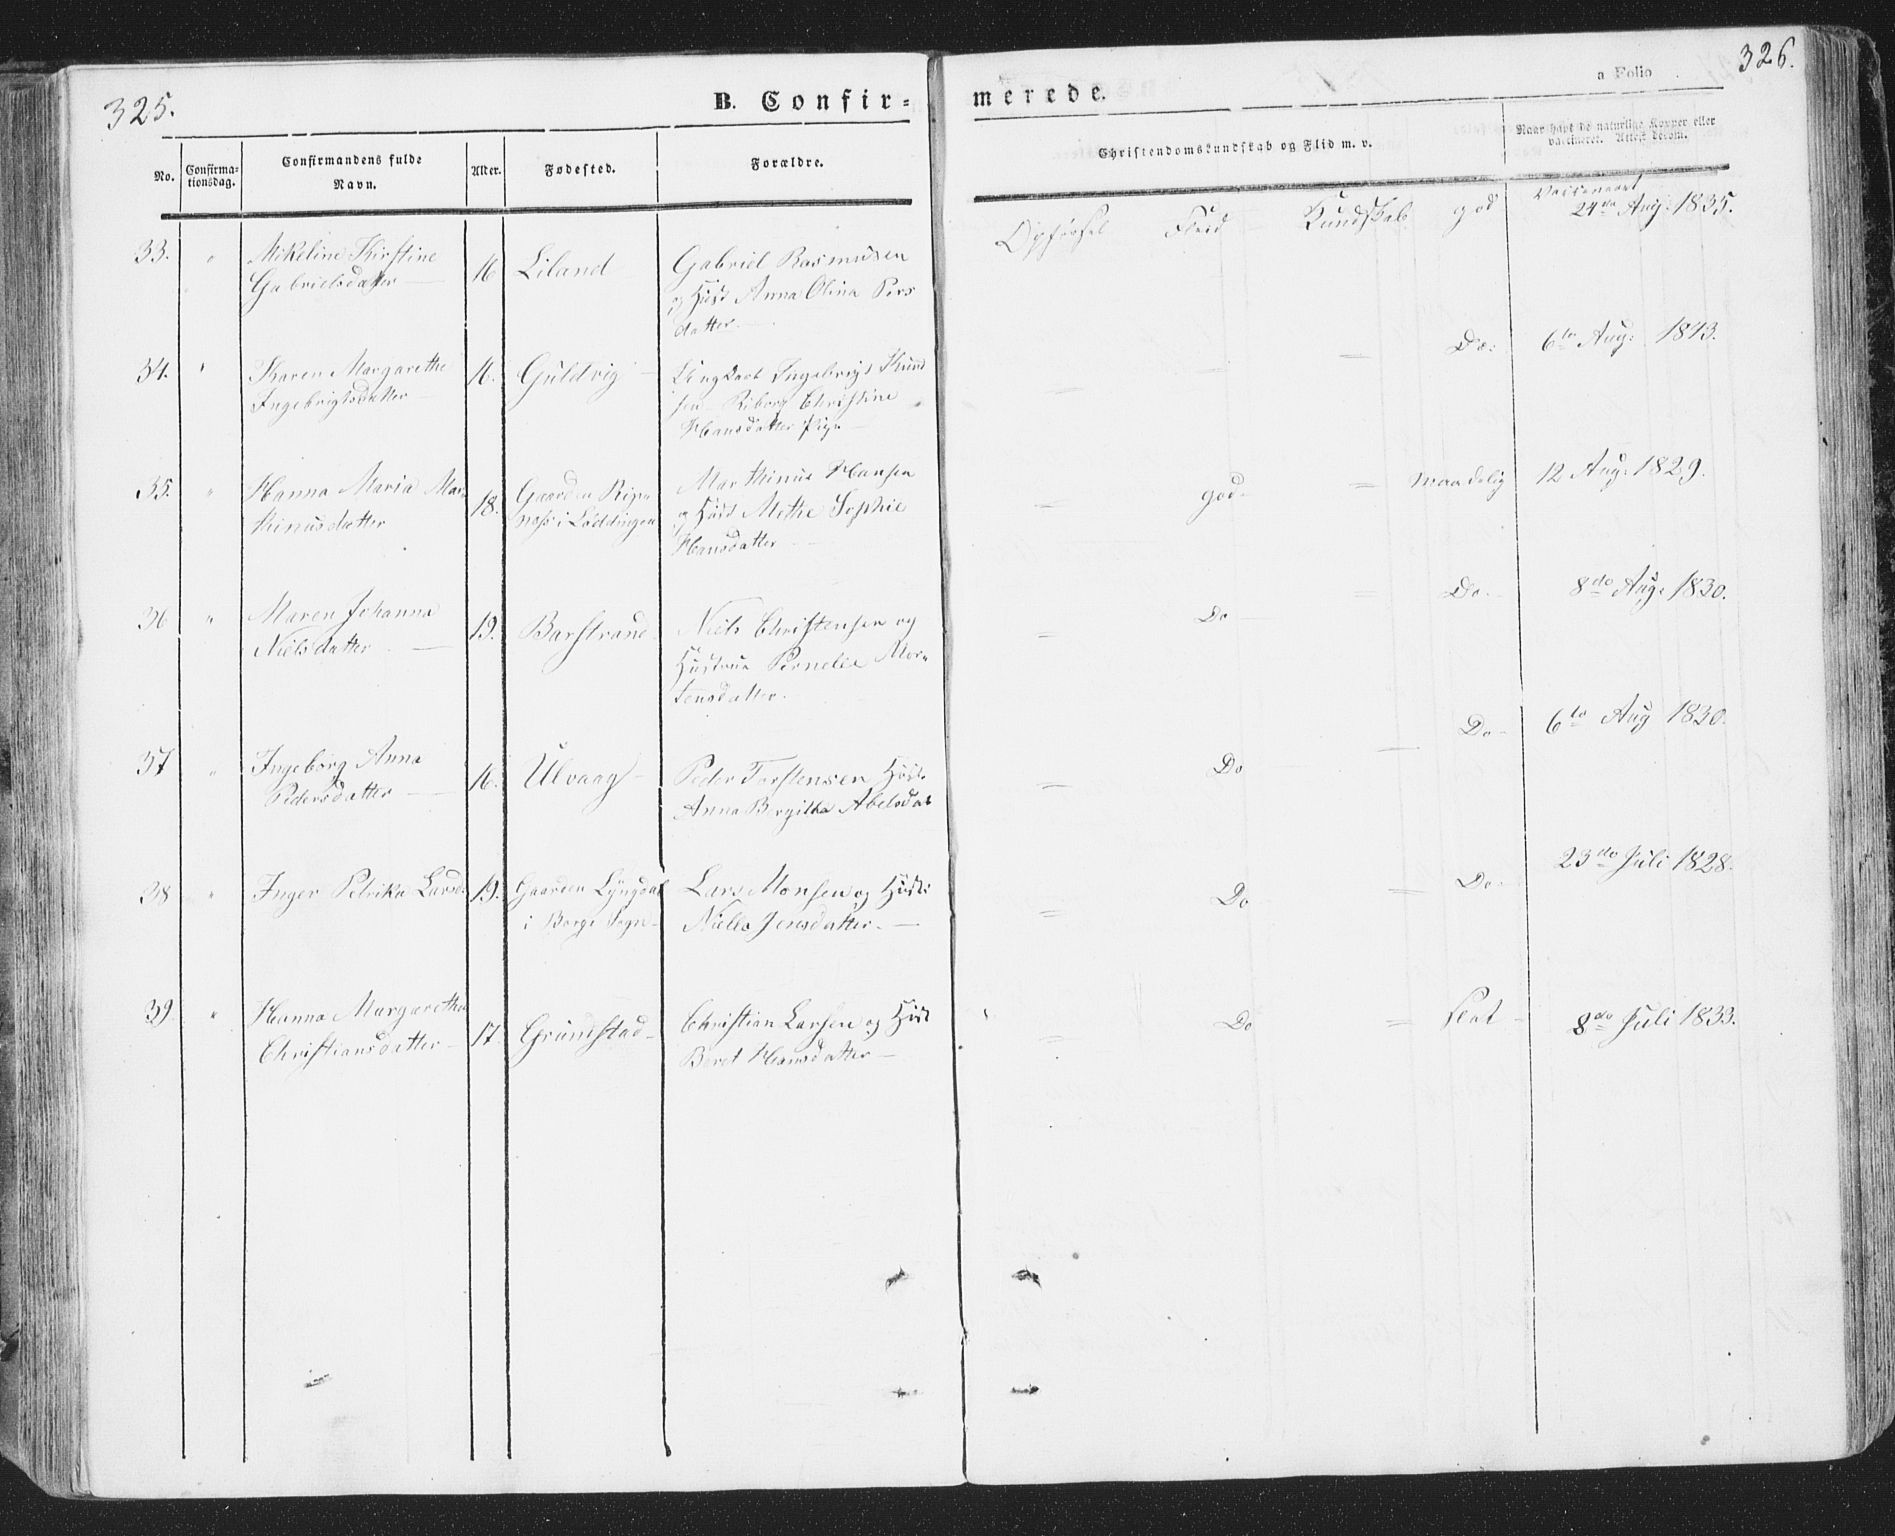 325.
B. Confir-
merede.
a Folio
326.
No.
Confirma-
tionsdag.
Confirmandens fulde
Navn.
Alder.
Fødested.
Forældre.
Christendomskundskab og Flid m. v.
Naar havt de naturlige Kopper eller
vaccineret. Attest derom.
33. " Mikeline Kirstine
Gabrielsdatter
16 Liland
Gabriel Rasmusen
og Hust Anna Olina Pers
datter.
Opførsel Flid Kundskab god
Vaccineret
24de Aug. 1835.
34. " Karen Margarethe
Ingebrigtsdatter
16. Guldvig
Ungkarl Ingebrigt Knud
sen Riborg Christine
Hansdatter Pige
= Do: 6te Aug: 1843.
35. " Hanna Maria Mar-
thinusdatter
18. Gaarden
i Löddingen
Marthinus Hansen
og Hust Methe Sophie
Hansdatter
= god = maadelig 12 Aug: 1829.
36 " Maren Johanna
Nielsdatter
19. Barstrand
Niels Christensen og
Hustrue Pernelle Mor-
tensdatter.
= Do = Do. 8de Aug: 1830.
37 " Ingeborg Anna
Pedersdatter
16. Ulvaag
Peder Torstensen Hust.
Anna Bergitha Abelsdat
= Do — Do 6te Aug 1830.
38 " Inger Petrika Larsd.
19. Gaarden Lyngdal
i Borge Sogn
Lars Monsen og Hust:
Niella Jensdatter.
= Do = Do. 23de Juli 1828.
39. " Hanna Margaretha
Christiansdatter
17. Grundstad
Christian Larsen og Hust
Beret Hansdatter
= Do = slet 8de Juli 1833.